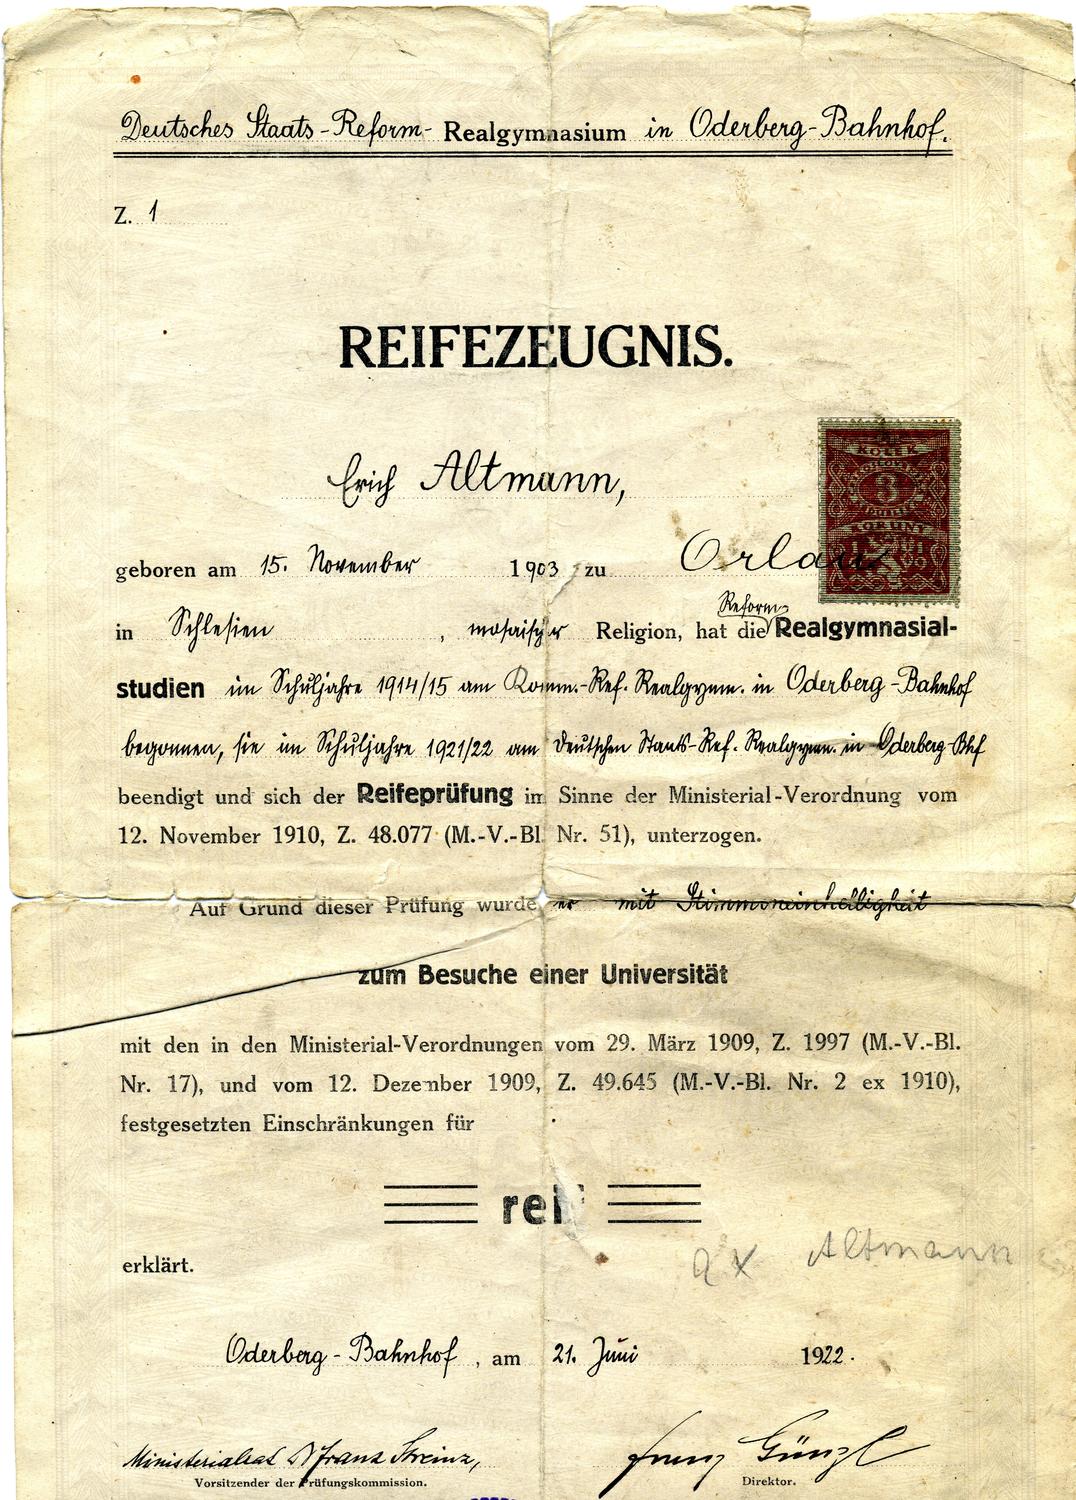 Deutsches Staats-Reform-Realgymnasium in Oderberg-Bahnhof.
Z. 1
REIFEZEUGNIS.
Erich Altmann,
KOLEK
3
KORUNY
geboren am 15. November 1903 zu Orlau
in Schlesien, mosaischer Religion, hat die Reform Realgymnasial-
studien im Schuljahre 1914/15 am Komm.-Ref. Realgymn. in Oderberg-Bahnhof
begonnen, sie im Schuljahre 1921/22 am Deutschen Staats-Ref. Realgymn. in Oderberg-Bhf
beendigt und sich der Reifeprüfung im Sinne der Ministerial-Verordnung vom
12. November 1910, Z. 48.077 (M.-V.-Bl. Nr. 51), unterzogen.
Auf Grund dieser Prüfung wurde er mit Stimmeneinhelligkeit
zum Besuche einer Universität
mit den in den Ministerial-Verordnungen vom 29. März 1909, Z. 1997 (M.-V.-Bl.
Nr. 17), und vom 12. Dezember 1909, Z. 49.645 (M.-V.-Bl. Nr. 2 ex 1910),
festgesetzten Einschränkungen für
reif
erklärt.
Altmann
Oderberg-Bahnhof, am 21. Juni 1922.
Ministerialrat Dr Franz Streinz, Franz Günzl
Vorsitzender der Prüfungskommission. Direktor.